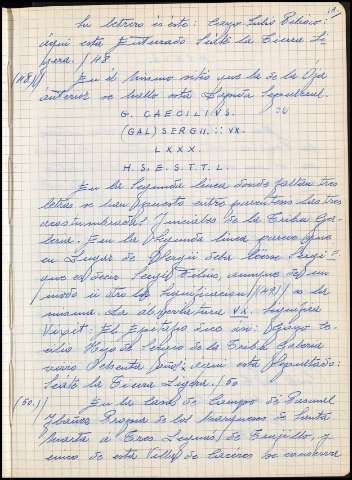 Su letrero es este: Cayo Julio
aqui esta Enterrado Seate la Tierra Li
gera. /48
(48)/ En el mismo sitio que la de la Oja
anterior se hallo esta Lapida Sepulcral.
G. CAECILIVS.
(GAL) SERGII :: VX.
LXXX.
H. S. E. S. T. T. L.
En la Segunda linea donde faltan tres
letras se han puesto entre parentesis las tres
acostumbradas Iniciales de la Tribu Ga-
leria. En la Segunda linea parece que
en Lugar de Sergii debe leerse Sergi F
que es decir Sergii Filius, aunque de un
modo u otro la Significacion /(49)/ es la
misma. La abreviatura VX. Significa
Vixit: El Epitafio dice asi: Cayo Ce-
cilio Hijo de Sergio de la Tribu Galeria
vivio Ochenta años: aqui esta Sepultado:
Seate la Tierra Ligera. /50
(50.)/ En la Casa de Campo de Pascual
Ybañez Propia de los Marqueses de Santa
Marta a tres Leguas de Trujillo, y
cinco de esta Villa de Caceres se conserva